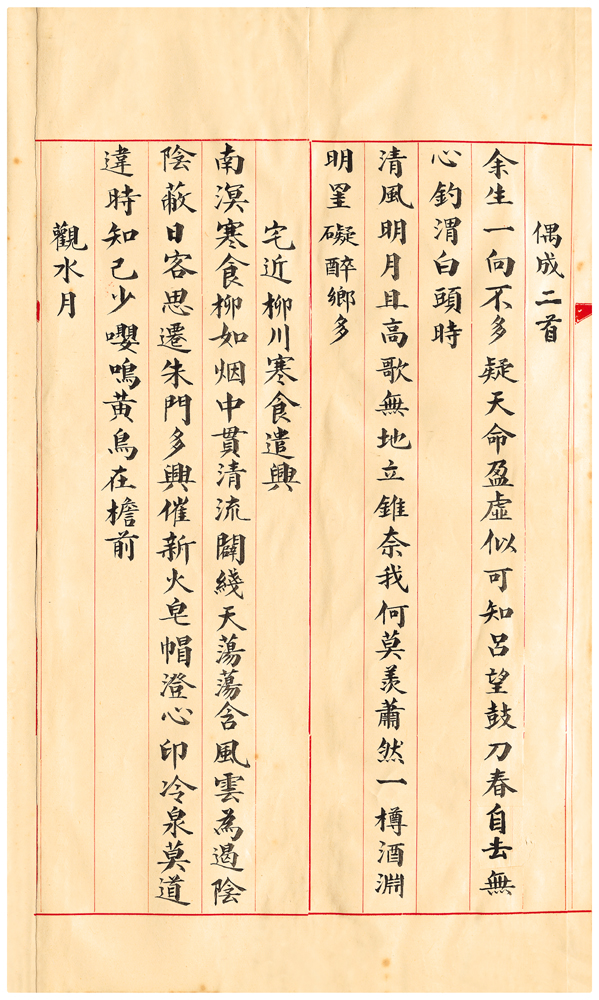 偶成二首
余生一向不多疑天命盈虛似可知呂望鼓刀春自去無
心釣渭白頭時
清風明月且高歌無地立錐奈我何莫羨蕭然一樽酒淵
明罣礙醉鄉多
宅近柳川寒食遣興
南溟寒食柳如烟中貫清流闢綫天蕩蕩含風雲為遏陰
陰蔽日客思遷朱門多興催新火皂帽澄心印冷泉莫道
違時知己少嚶鳴黃鳥在檐前
觀水月